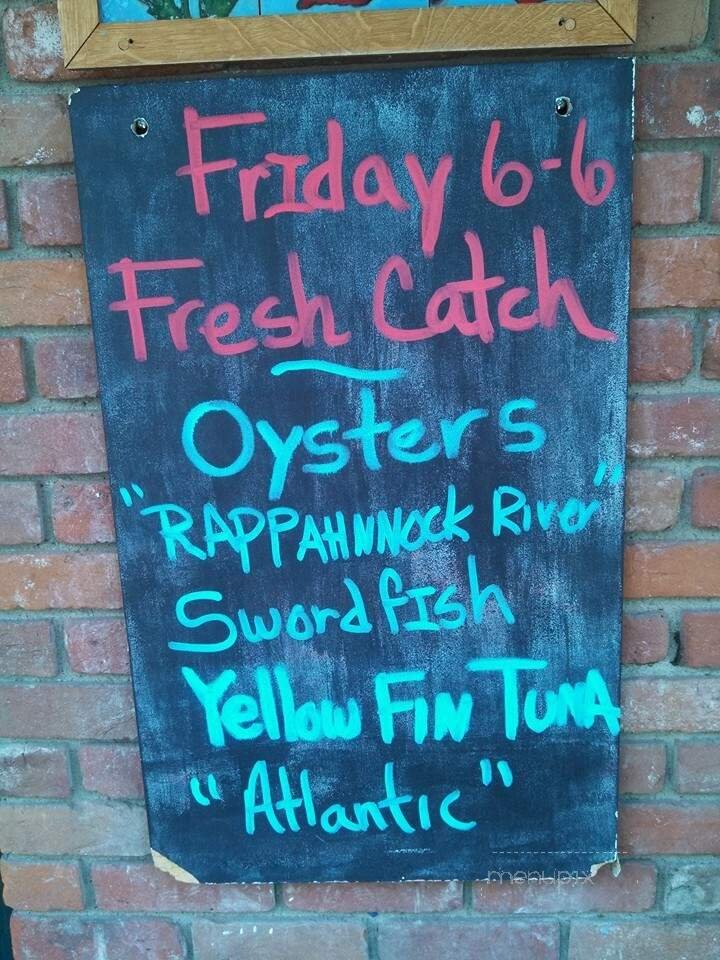 Friday 6-6
Fresh Catch
Oysters
"RAPPAHNNOCK River"
Swordfish
Yellow Fin Tuna
"Atlantic"
menupix